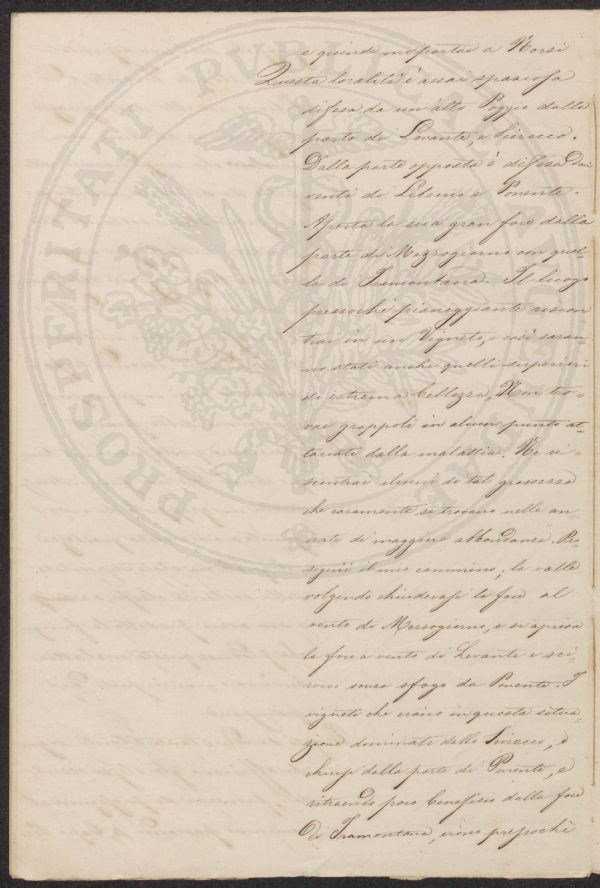 e quindi mi portai a Norsi
Questa località è assai spaziosa
difesa da un'alto Poggio dalla
parte di Levante, e Scirocco.
Dalla parte opposta è difesa dai
venti di Libeccio e Ponente.
Aperta la sua gran foce dalla
parte di Mezzogiorno con quel-
la di Tramontana. Il luogo
pressochè pianeggiante riscon
trai in un Vigneto, e così saran
no stati anche quelli superiori
di estrema bellezza, Non tro-
vai grappoli in alcun punto at-
taccati dalla malattia. Ne ri-
scontrai alcuni di tal grossezza
che raramente si trovano nelle an
nate di maggiore abbondanza. Pro
seguii il mio cammino; la valle
volgendo chiudevasi la foce al
vento di Mezzogiorno, e si apriva
la foce a vento di Levante e sci-
rocco senza sfogo da Ponente. I
vigneti che erano in questa situa
zione dominati dallo Scirocco, e
chiusi dalla parte di Ponente, e
ritraendo poco benefizio dalla foce
di Tramontana, erono pressochè
PROSPERITATI PVBLICAE